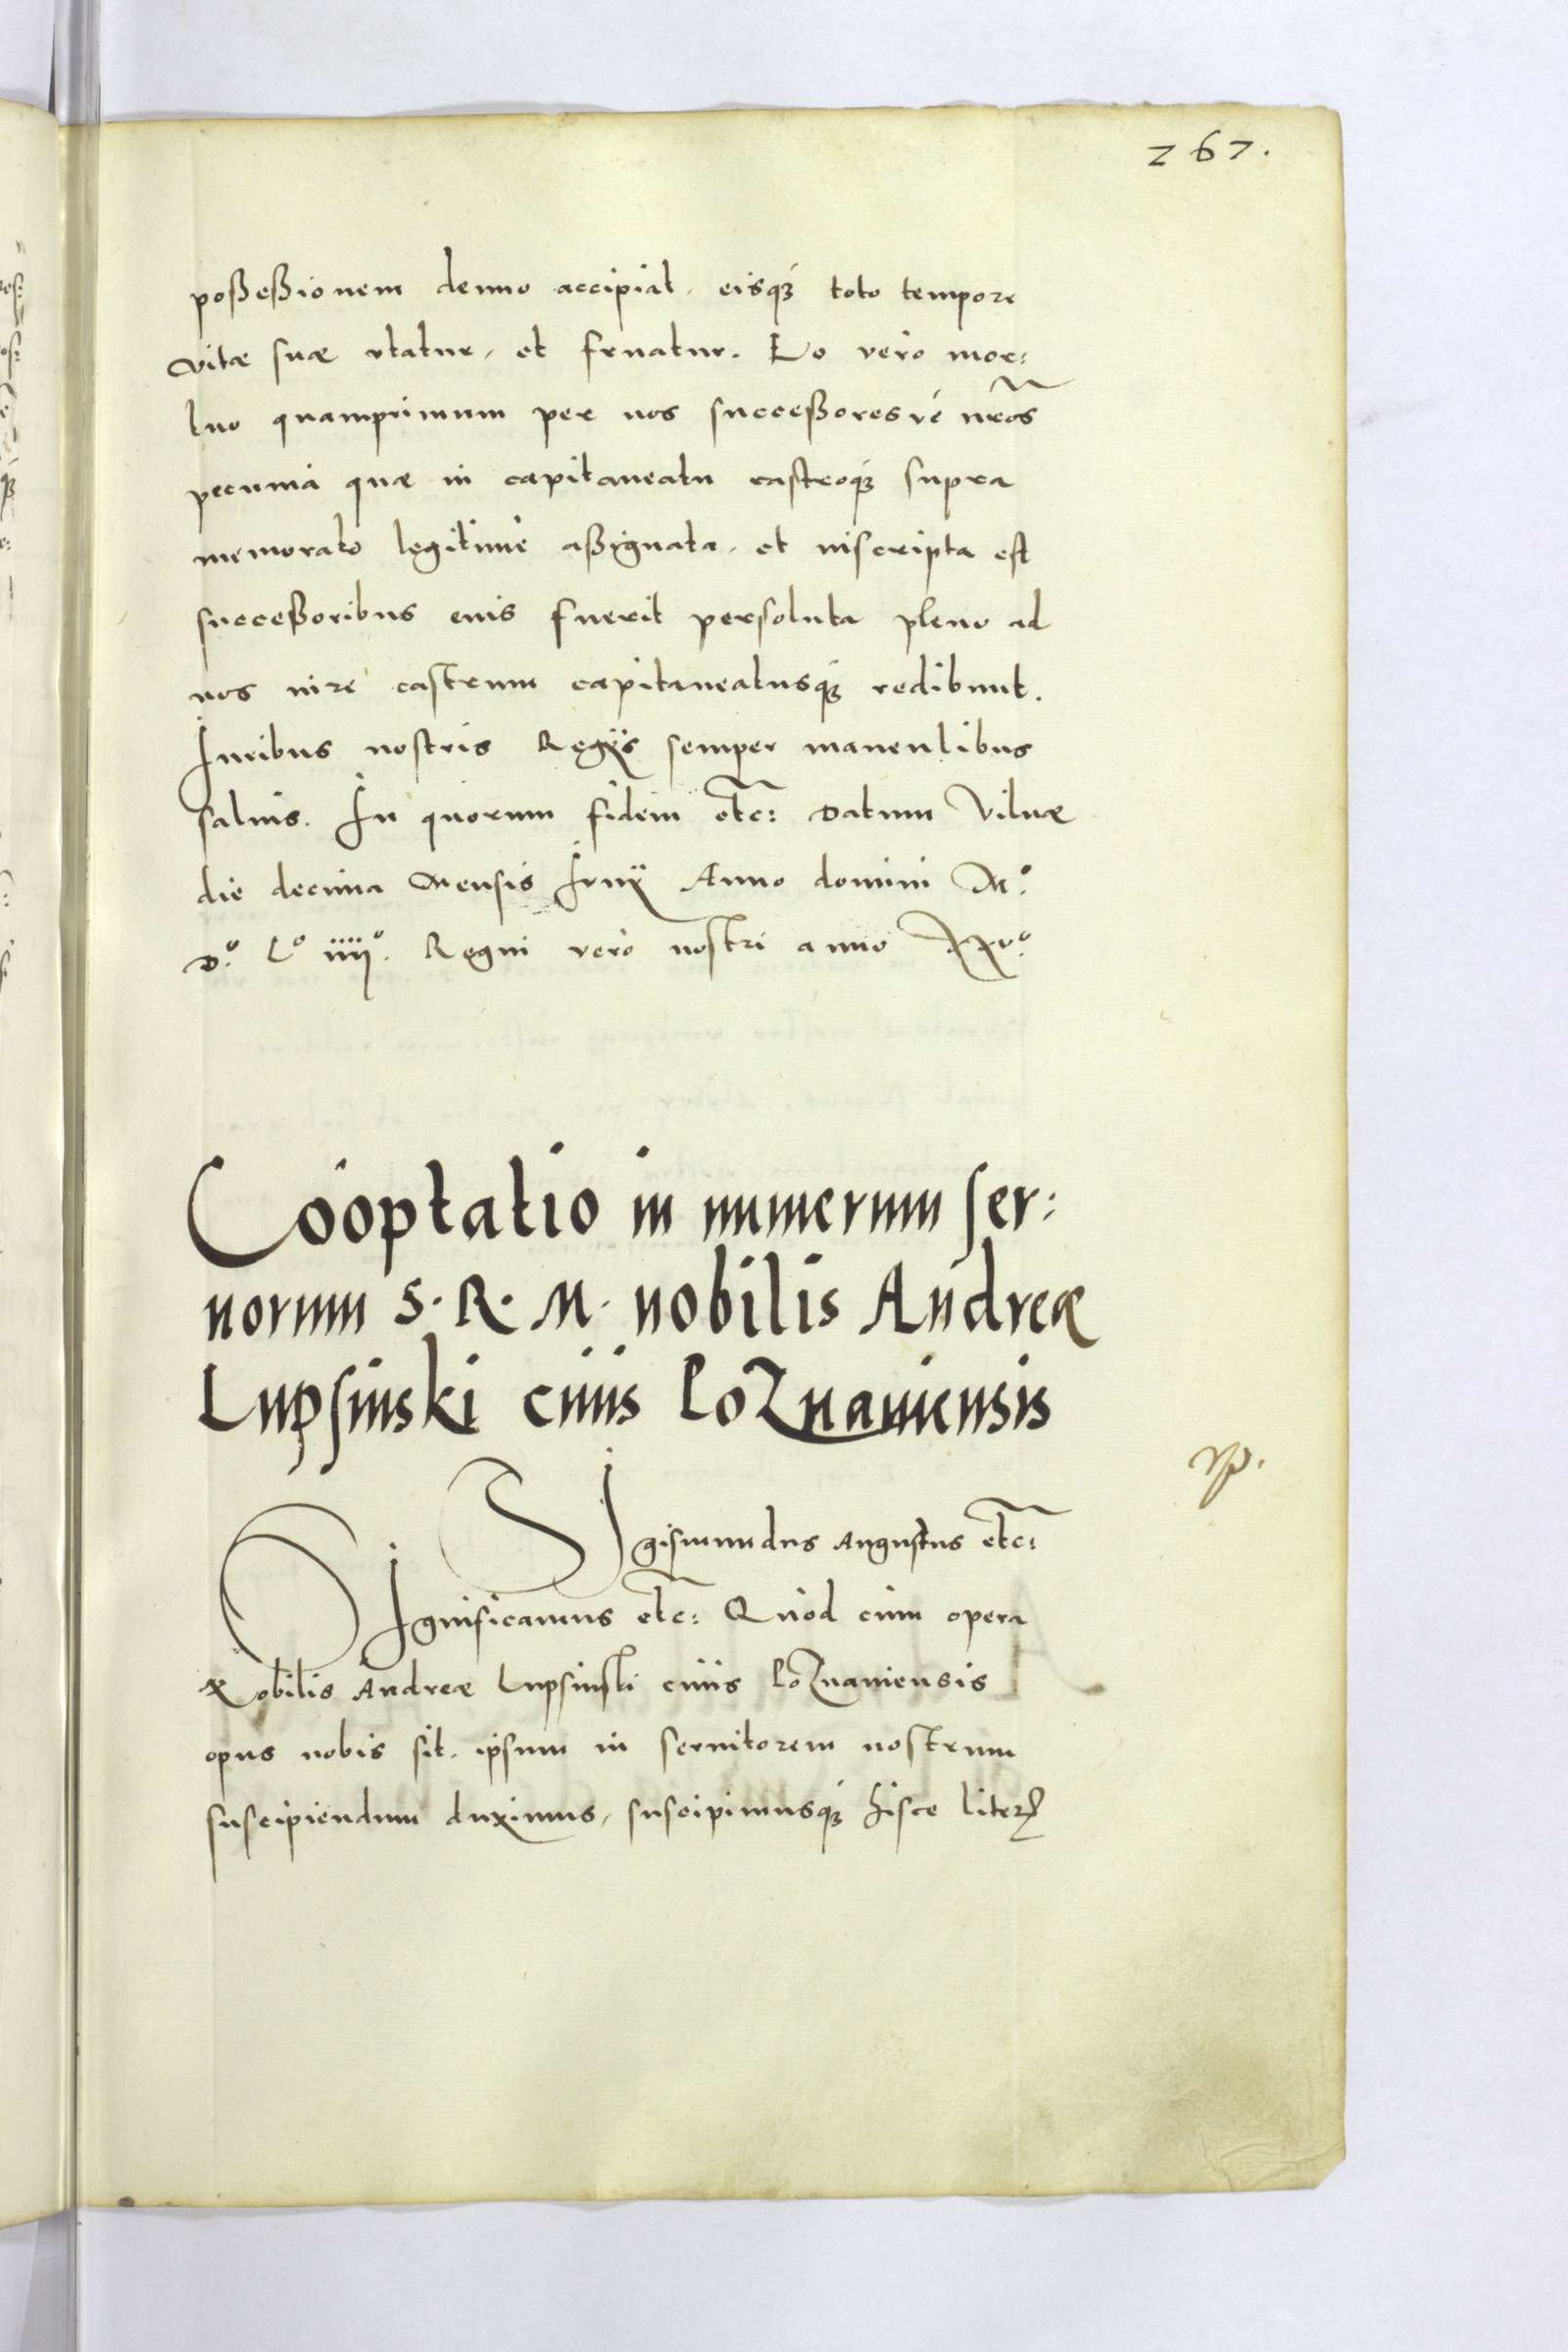 267.
poßeßionem denuo accipiat, eisq₃ toto tempore
vitæ suæ vtatur, et fruatur. Eo vero mor:
tuo quamprimum per nos succeßoresvé nr̃os
pecunia quæ in capitaneatu castroq₃ supra
memorato legitimè aßignata, et inscripta est
succeßoribus eius fuerit persoluta pleno ad
nos iure castrum capitaneatusq₃ redibunt.
Iuribus nostris Regijs semper manentibus
saluis. In quorum fidem etc: Datum Vilnæ
die decima Mensis Iunij Anno domini M.º
D.º Lº iiijº. Regni vero nostri anno XXvº.
Cooptatio in numerum ser:
uorum S. R. M. nobilis Andreæ
Lupsinski ciuis Poznaniensis
rp.
SIgismundus Augustus etc:
SIgnificamus etc: Quod cum opera
Nobilis Andreæ Lupsinski ciuis Poznaniensis
opus nobis sit, ipsum in seruitorem nostrum
suscipiendum duximus, suscipimusq₃ hisce literꝭ